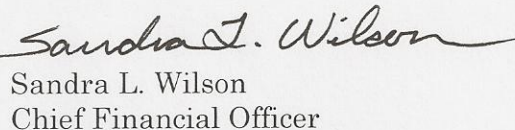 Sandra L. Wilson
Sandra L. Wilson
Chief Financial Officer